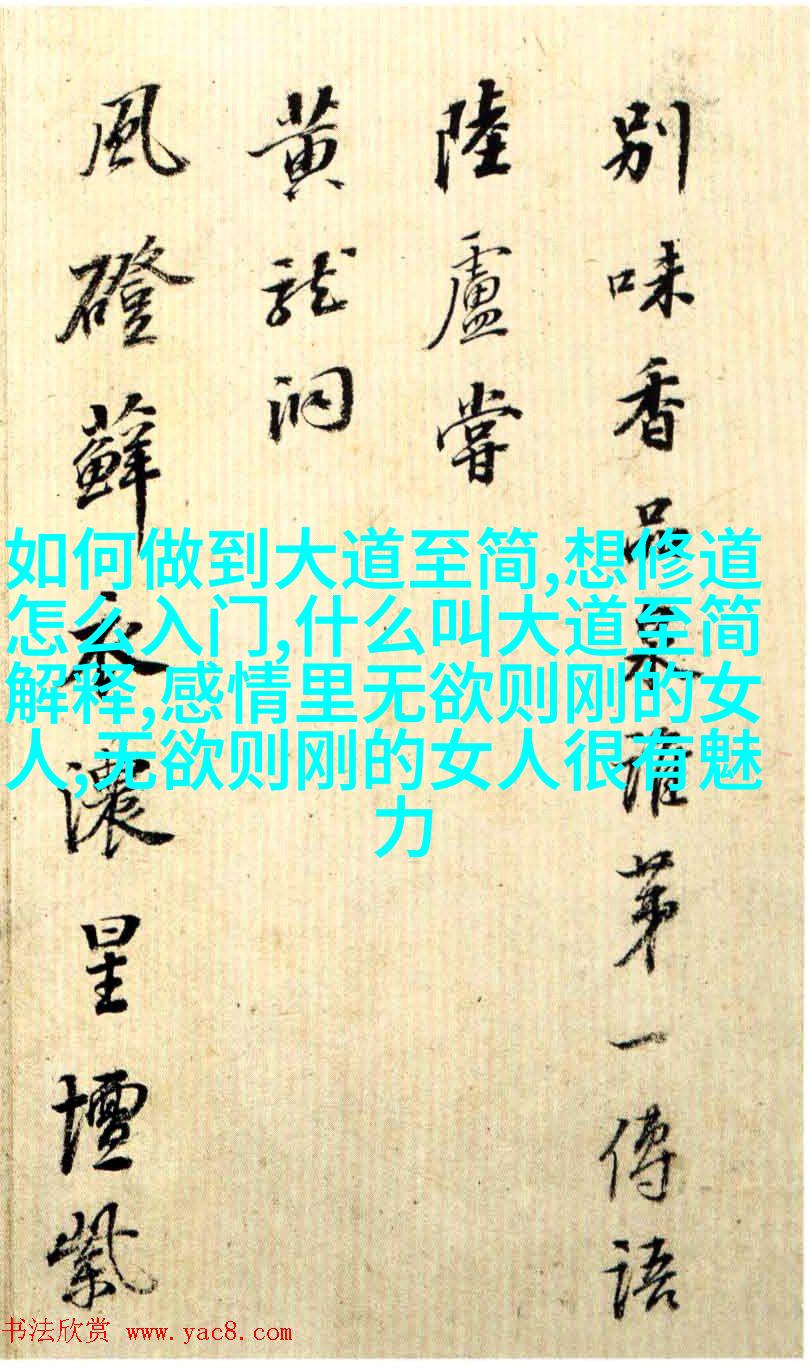 別味香品泉誰第一傳語
陸盧嘗
黃龍洞
風磴蘚衣濃星壇紫
如何做到大道至简,想修道
怎么入门,什么叫大道至简
解释,感情里无欲则刚的女
人,无欲则刚的女人很有魅
力
书法欣赏 www.yac8.com